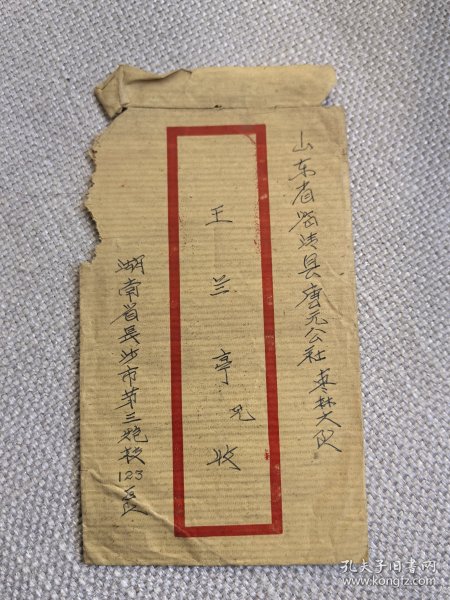 山东省临清县唐元公社枣林大队
王兰亭兄收
湖南省长沙市第三炮校123
孔夫子旧书网
www.kongfz.com